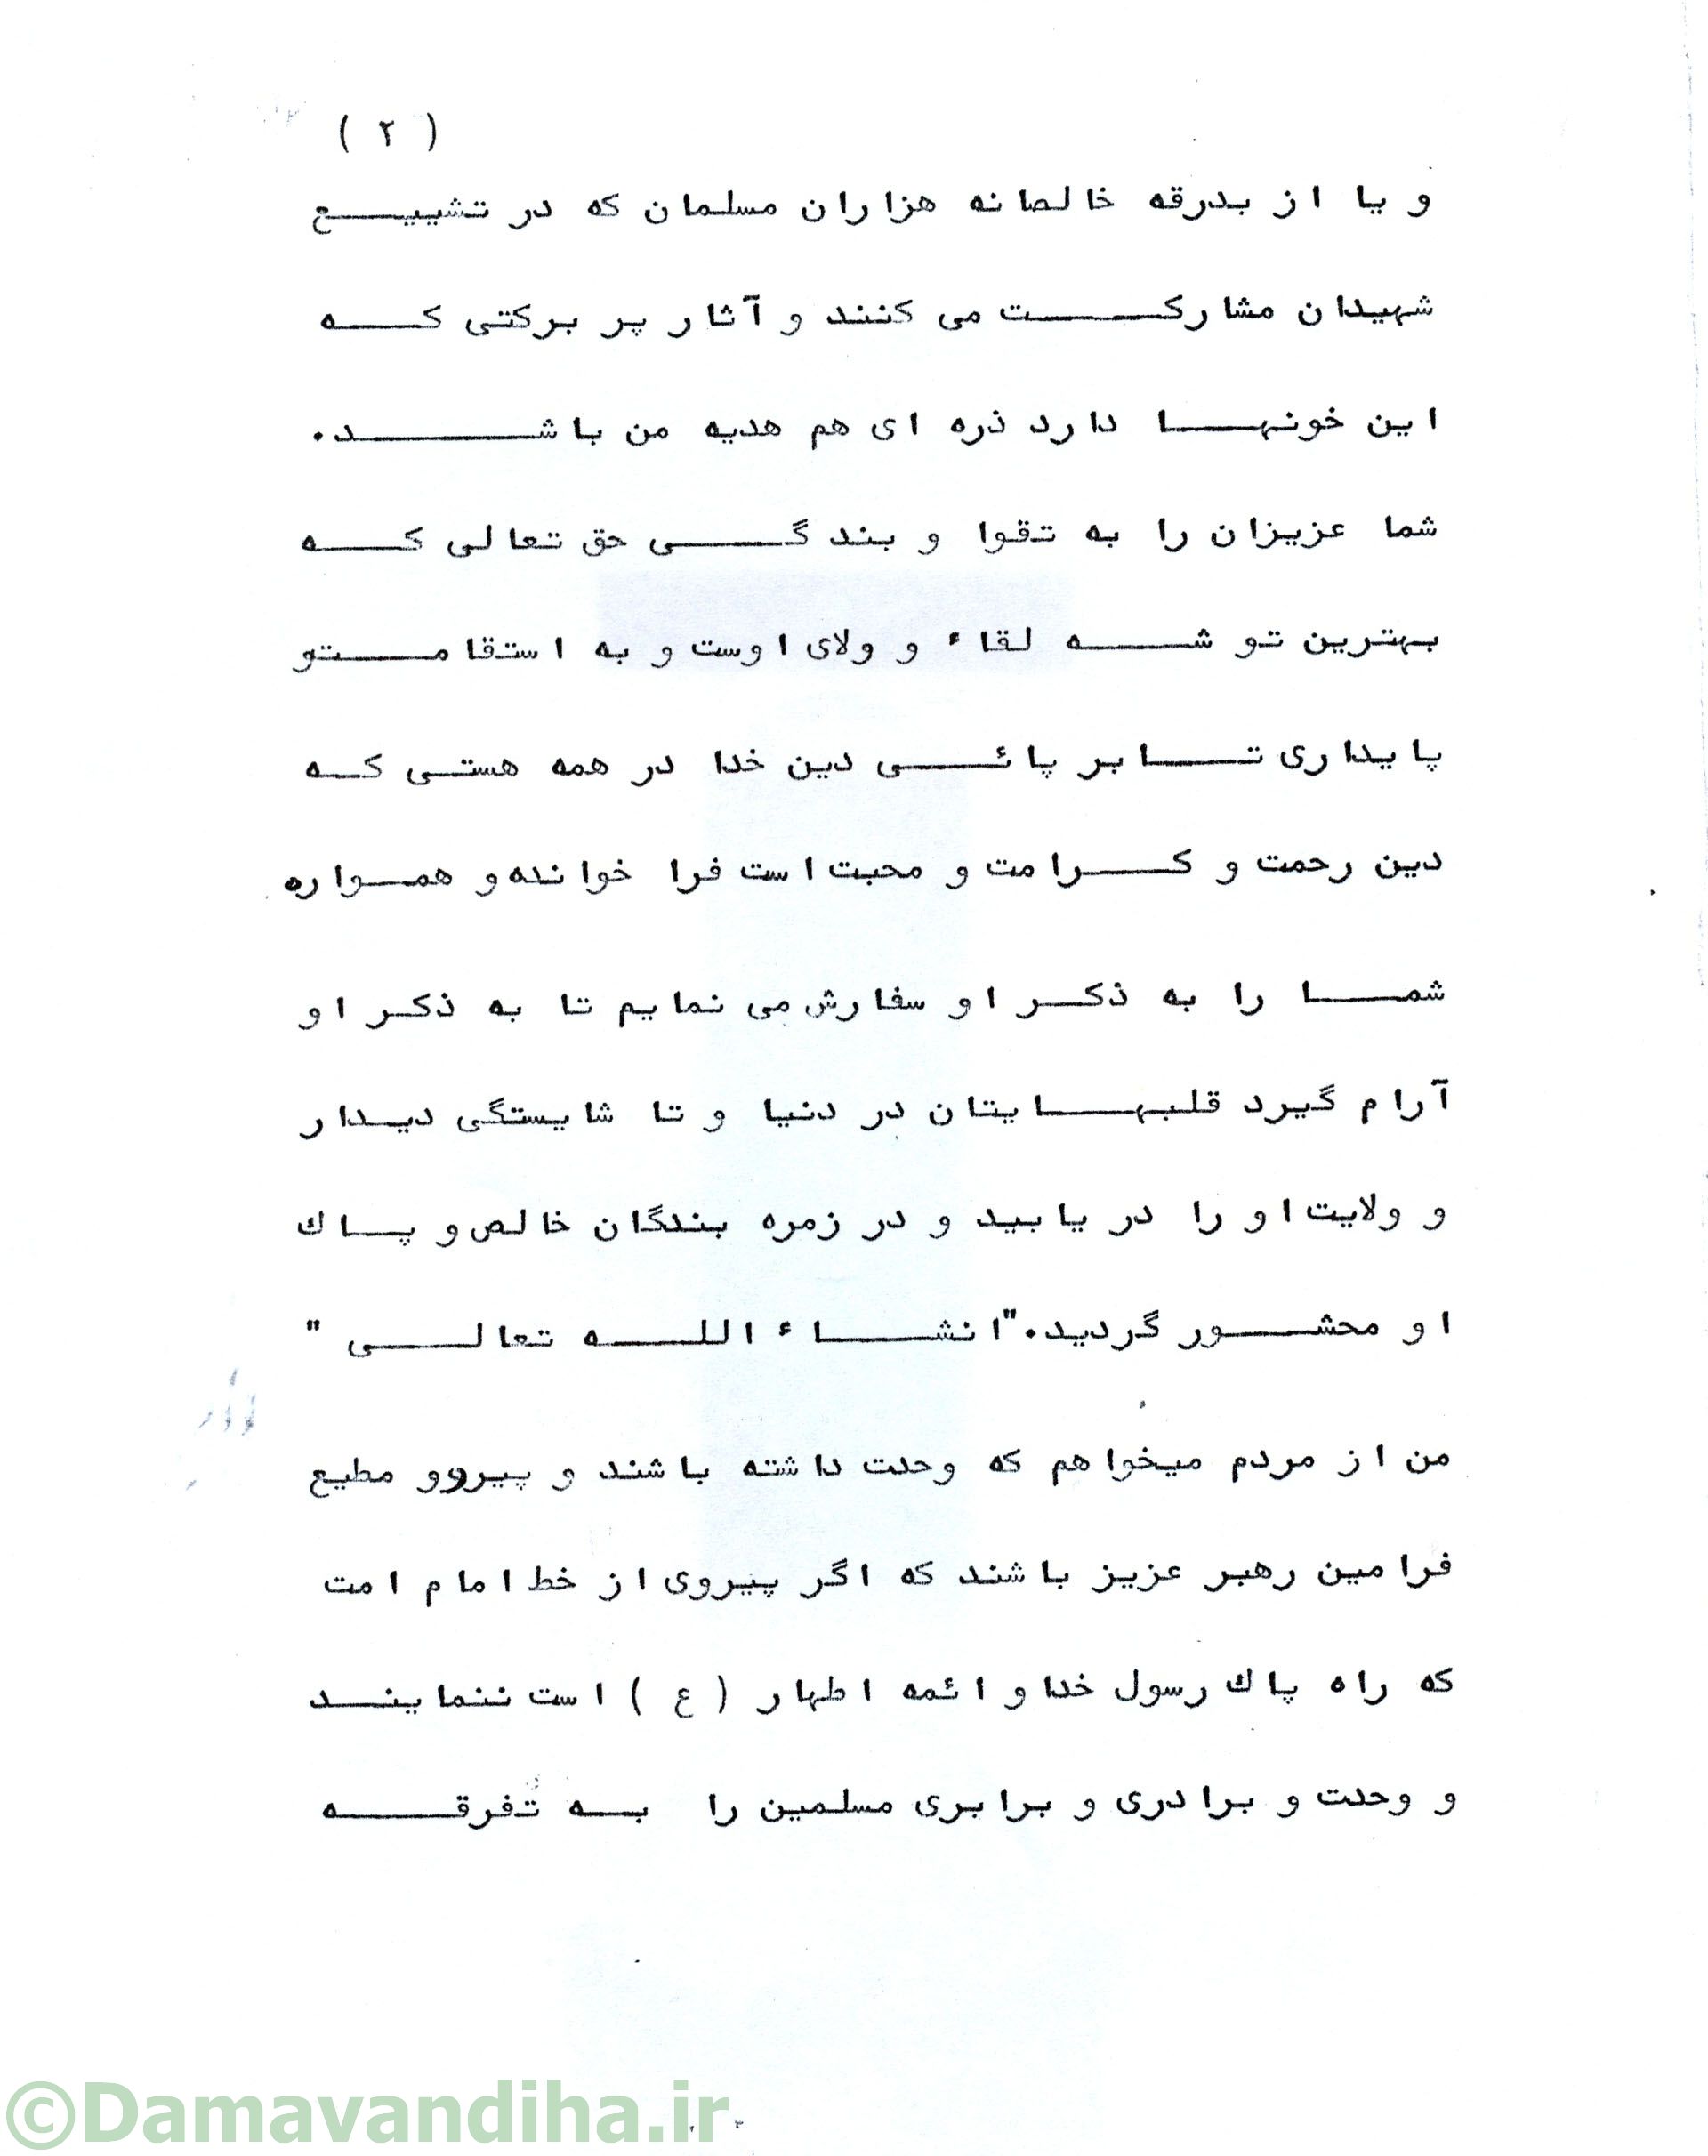 ( ۲ )
و یا از بدرقه خالصانه هزاران مسلمان که در تشییع
شهیدان مشارکت می کنند و آثار پر برکتی که
این خونها دارد ذره ای هم هدیه من باشد.
شما عزیزان را به تقوا و بندگی حق تعالی که
بهترین توشه لقاء و ولای اوست و به استقامتو
پایداری تا برپائی دین خدا در همه هستی که
دین رحمت و کرامت و محبت است فرا خوانده و همواره
شما را به ذکر او سفارش می نمایم تا به ذکر او
آرام گیرد قلبهایتان در دنیا و تا شایستگی دیدار
و ولایت او را دریابید و در زمره بندگان خالص و پاك
او محشور گردید. "انشاء الله تعالی"
من از مردم میخواهم که وحدت داشته باشند و پیروو مطیع
فرامین رهبر عزیز باشند که اگر پیروی از خط امام امت
که راه پاك رسول خدا و ائمه اطهار (ع) است ننمایند
و وحدت و برادری و برابری مسلمین را به تفرقه
©Damavandiha.ir